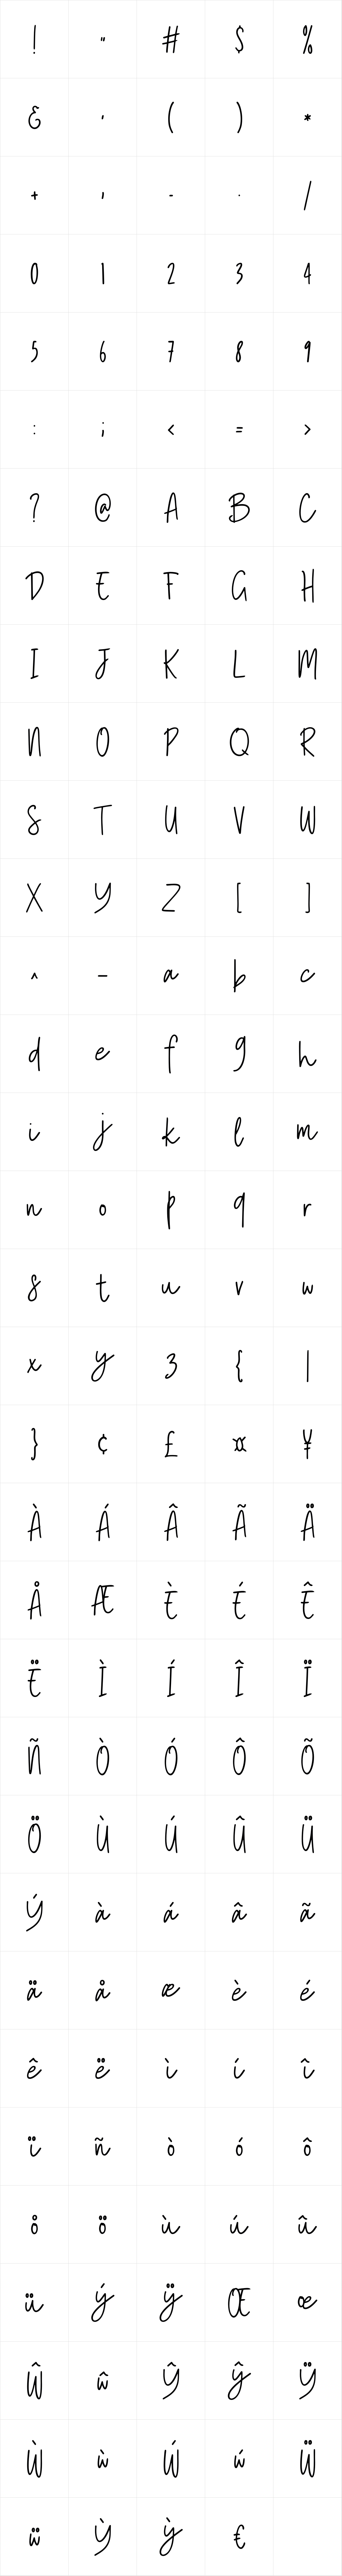 ! " # $ %
& ' ( ) *
+ , - . /
0 1 2 3 4
5 6 7 8 9
: ; < = >
? @ A B C
D E F G H
I J K L M
N O P Q R
S T U V W
X Y Z [ ]
^ _ a b c
d e f g h
i j k l m
n o p q r
s t u v w
x y z { |
} ¢ £ ¤ ¥
À Á Â Ã Ä
Å Æ È É Ê
Ë Ì Í Î Ï
Ñ Ò Ó Ô Õ
Ö Ù Ú Û Ü
Ý à á â ã
ä å æ è é
ê ë ì í î
ï ñ ò ó ô
o̊ ö ù ú û
ü ý ÿ Œ œ
Ŵ ŵ Ŷ ŷ Ÿ
Ẁ ẁ Ẃ ẃ Ẅ
ẅ Ỳ ỳ €